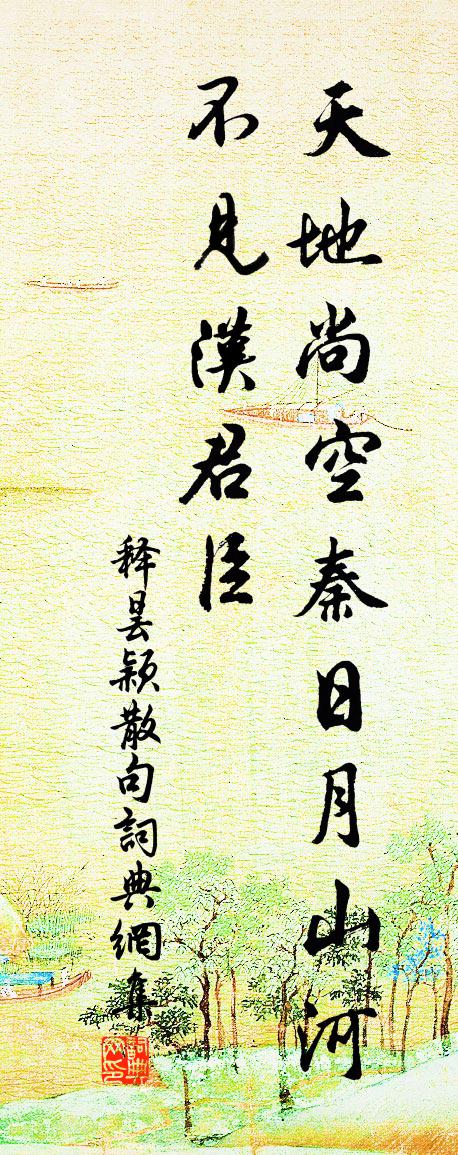 天地尚空秦日月山河
不見漢君臣
释曇颖散句詞典網集